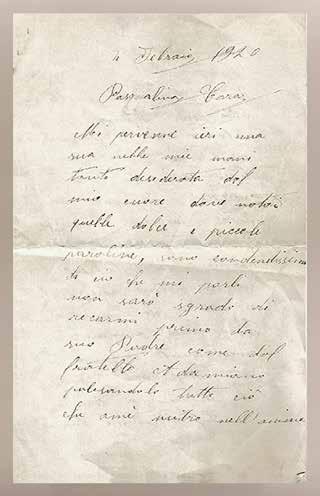 4 Febraio 1920
Pasqualina Cara
Mi pervenne ieri una
sua nelle mie mani
tanto desiderata dal
mio cuore dove notai
quelle dolce e piccole
paroline, sono condendissimo
di ciò che mi parli
non sarò sgrado di
recarmi primo da
suo Padre come dal
fratello Adamiano
palesandolo tutto ciò
che amè nutro nell'anime